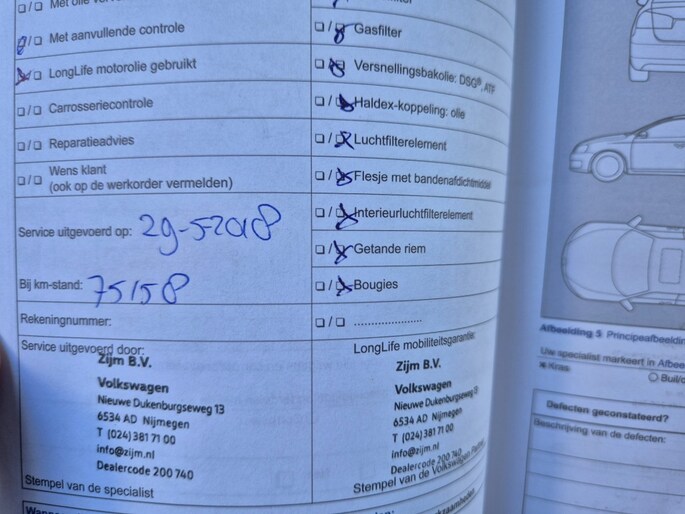 Met aanvullende controle
LongLife motorolie gebruikt
Carrosseriecontrole
Reparatieadvies
Wens klant
(ook op de werkorder vermelden)
Service uitgevoerd op: 29-5-2018
Bij km-stand: 75158
Rekeningnummer:
Service uitgevoerd door:
Zijm B.V.
Volkswagen
Nieuwe Dukenburgseweg 13
6534 AD Nijmegen
T (024) 381 71 00
info@zijm.nl
Dealercode 200 740
Stempel van de specialist
Gasfilter
Versnellingsbakolie: DSG®, ATF
Haldex-koppeling: olie
Luchtfilterelement
Flesje met bandenafdichtmiddel
Interieurluchtfilterelement
Getande riem
Bougies
.....................
LongLife mobiliteitsgarantie:
Zijm B.V.
Volkswagen
Nieuwe Dukenburgseweg 13
6534 AD Nijmegen
T (024) 381 71 00
info@zijm.nl
Dealercode 200 740
Stempel van de Volkswagen Partner
Afbeelding 5 Principeafbeeldin
Uw specialist markeert in Afbee
Kras
Buil/d
Defecten geconstateerd?
Beschrijving van de defecten: